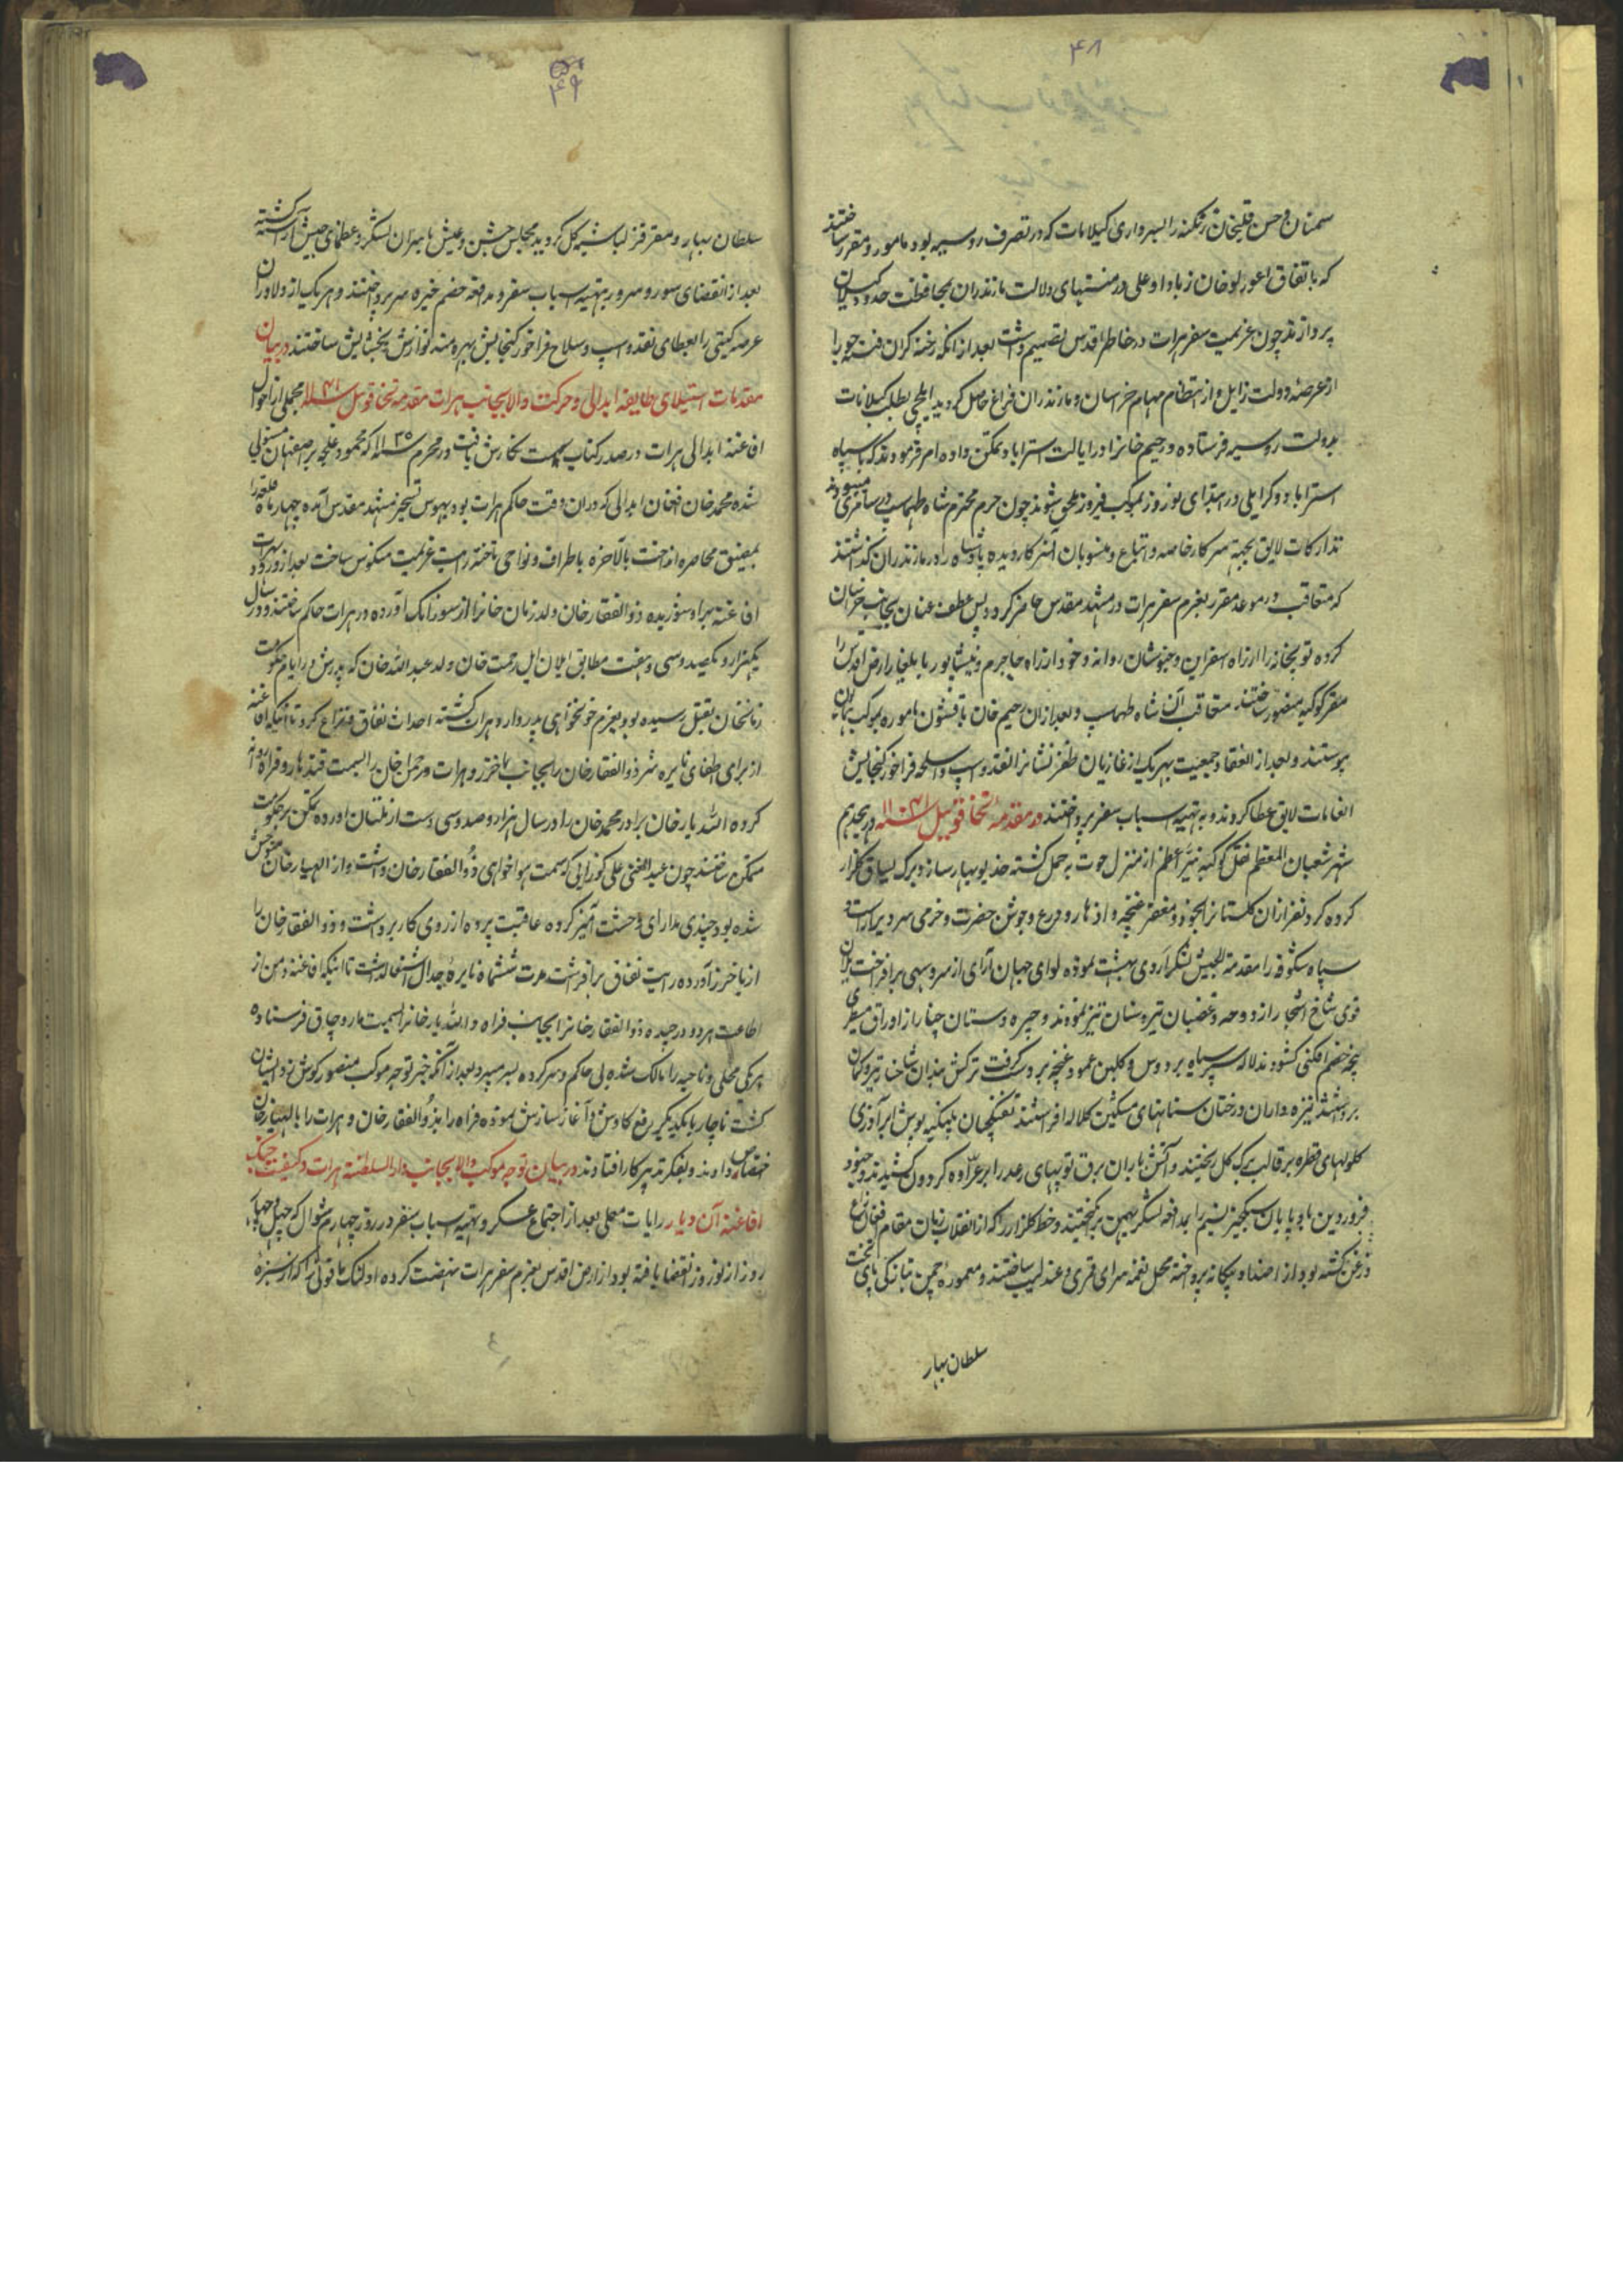 ۴۸
سمنان و حسن قلیخان زنکنه را بسرداری کیلانات که در تصرف روسیه بود مامور و مقرر ساختند
که باتفاق خان زیاد اوغلی در منتهای ولایت مازندران بمحافظت حدود کیلان
پردازند چون عزیمت سفر هرات در خاطر اقدس تصمیم داشت بعد از انکه رخنه کران فتنه جو را
از عرصه دولت زایل و از انتظام مهام خراسان و مازندران فراغ حاصل کردید ایلچی بطلب کیلانات
بدولت روسیه فرستاده و رحیم خانرا در ایالت استراباد تمکن داده امر فرمودند که با سپاه
استراباد و کرایلی در ابتدای نوروز بموکب فیروز ملحق شوند چون حرم محترم شاه طهماسب در ساری میبودند
تدارکات لایق بجهة سرکار خاصه و اتباع و منسوبان انسرکار دیده پادشاه را در مازندران کذاشتند
که متعاقب در موعد مقرر بعزم سفر هرات در مشهد مقدس حاضر کردد پس عطف عنان بجانب خراسان
کرده توپخانه را از راه اسفراین و خبوشان روانه و خود از راه جاجرم و نیشابور بایلغار ارض اقدس را
مقر کوکبه منصور ساختند متعاقب آن شاه طهماسب و بعد از ان رحیم خان با قشون ماموره بموکب همایون
پیوستند و بعد از انعقاد جمعیت بهر یک از غازیان ظفر نشانرا نقد و اسپ و اسلحه فراخور کنجایش
انعامات لایق عطا کردند و به تهیه اسباب سفر پرداختند در مقدمه تخاقوئیل ۱۱۴۱ در هیجدهم
شهر شعبان المعظم نقل کوکبه نیر اعظم از منزل حوت به حمل کشته خدیو بهار ساز و برک یساق کلزار
کرده کردنفرازان کلستانرا بخود و مغفر غنچه و ازهار و درع و جوشن خضرت و خرمی سر و بر آراست و
سپاه شکوفه را مقدمة الجیش لشکر اردی بهشت نموده لوای جهان آرای از سرو سهی برافراخت یلان
قوی شاخ اشجار از دوحه و غضبان تیر و سنان تیز نمودند و چیره دستان چنار از اوراق
پنجه خصم افکنی کشودند لاله سپر سیاه بر دوش و کلبن عمود غنچه بر دست کرفت ترکش بندان شاخسار تیر و کمان
برداشتند نیزه داران درختان سنانهای مشکین کلاله افراشتند تفنکچیان
کلولهای قطره بر قالب برک کل ریختند و آتش باران برق توپهای رعد را بر عراده کردون کشیدند و جنود
فروردین بادپایان سبکخیز نسیم را بمدافعه لشکر بهمن برانکیختند و خط کلزار را که از انقلاب زمان مقام فغان زاغ
و زغن کشته بود از اضداد بیکانه پرداخته محل نغمه سرای قمری و عندلیب ساختند و معموره چمن بتازکی پای تخت
سلطان بهار
۴۹
سلطان بهار و مقر قزلباشیه کل کردید مجلس جشن و عیش با سران لشکر و عظمای جیش آراسته کشته
بعد از انقضای سور و سرور بتهیه اسباب سفر و مدافعه خصم خیره سر پرداختند و هر یک از دلاوران
عرصه کیتی را بعطای نقد و اسپ و سلاح فراخور کنجایش بهره مند نوازش و بخشایش ساختند در بیان
مقدمات استیلای طایفه ابدالی و حرکت والا بجانب هرات مقدمه تخاقوئیل ۱۱۴۱ مجملی از احوال
افاغنه ابدالی هرات در صدر کتاب سمت نکارش یافت در محرم ۱۱۳۵ که محمود غلجه بر اصفهان مستولی
شده محمد خان افغان ابدالی که در ان وقت حاکم هرات بود بهوس تسخیر مشهد مقدس آمده چهار ماه قلعه را
بمضیق محاصره انداخت بالآخره باطراف و نواحی تاخته رایت عزیمت منکوس ساخت بعد از ورود هرات
افاغنه بر او شوریده ذوالفقار خان ولد زمان خانرا از شورابک آورده در هرات حاکم ساختند و در سال
یکهزار و یکصد و سی و هفت مطابق ئیلان ئیل رحمت خان ولد عبدالله خان که پدرش در ایام حکومت
زمانخان بقتل رسیده بود بعزم خونخواهی پدر وارد هرات کشته احداث نفاق و نزاع کرد تا اینکه افاغنه
از برای اطفای نایره شر ذوالفقار خان را بجانب باخرز و هرات و رحمن خان را بسمت قندهار و فراه روانه
کرده الله یار خان برادر محمد خان را در سال هزار و صد و سی و ست از ملتان آورده تمکن بر حکومت
متمکن ساختند چون عبدالغنی علی کوزایی که سمت هواخواهی ذوالفقار خان داشت و از الهیار خان متوحش
شده بود چندی مدارای وحشت آمیز کرده عاقبت پرده از روی کار برداشت و ذوالفقار خان را
از باخرز آورده رایت نفاق برافراشت مدت ششماه نایرهٔ جدال اشتعال داشت تا اینکه افاغنه دامن از
اطاعت هر دو در چیده ذوالفقار خانرا بجانب فراه و الله یار خانرا بسمیت ماروچاق فرستاده
هر یکی محلی و ناحیه را مالک شده بی حاکم و سرکرده بسر میبرد بعد از آنکه خبر توجه موکب منصور کوش زد ایشان
کشت ناچار با یکدیکر رفع کاوش و آغاز سازش نموده فراه را بذوالفقار خان و هرات را بالهیار خان
اختصاص دادند و بفکر تدبیر کار افتادند در بیان توجه موکب والا بجانب دارالسلطنه هرات و کیفیت جنک
افاغنه آن دیار رایات معلی بعد از اجتماع عسکر و تهیه اسباب سفر در روز چهارم شوال که چهل و چهار
روز از نوروز انقضا یافته بود از ارض اقدس بعزم سفر هرات نهضت کرده اولنک یاقوتی را که از سبزهٔ